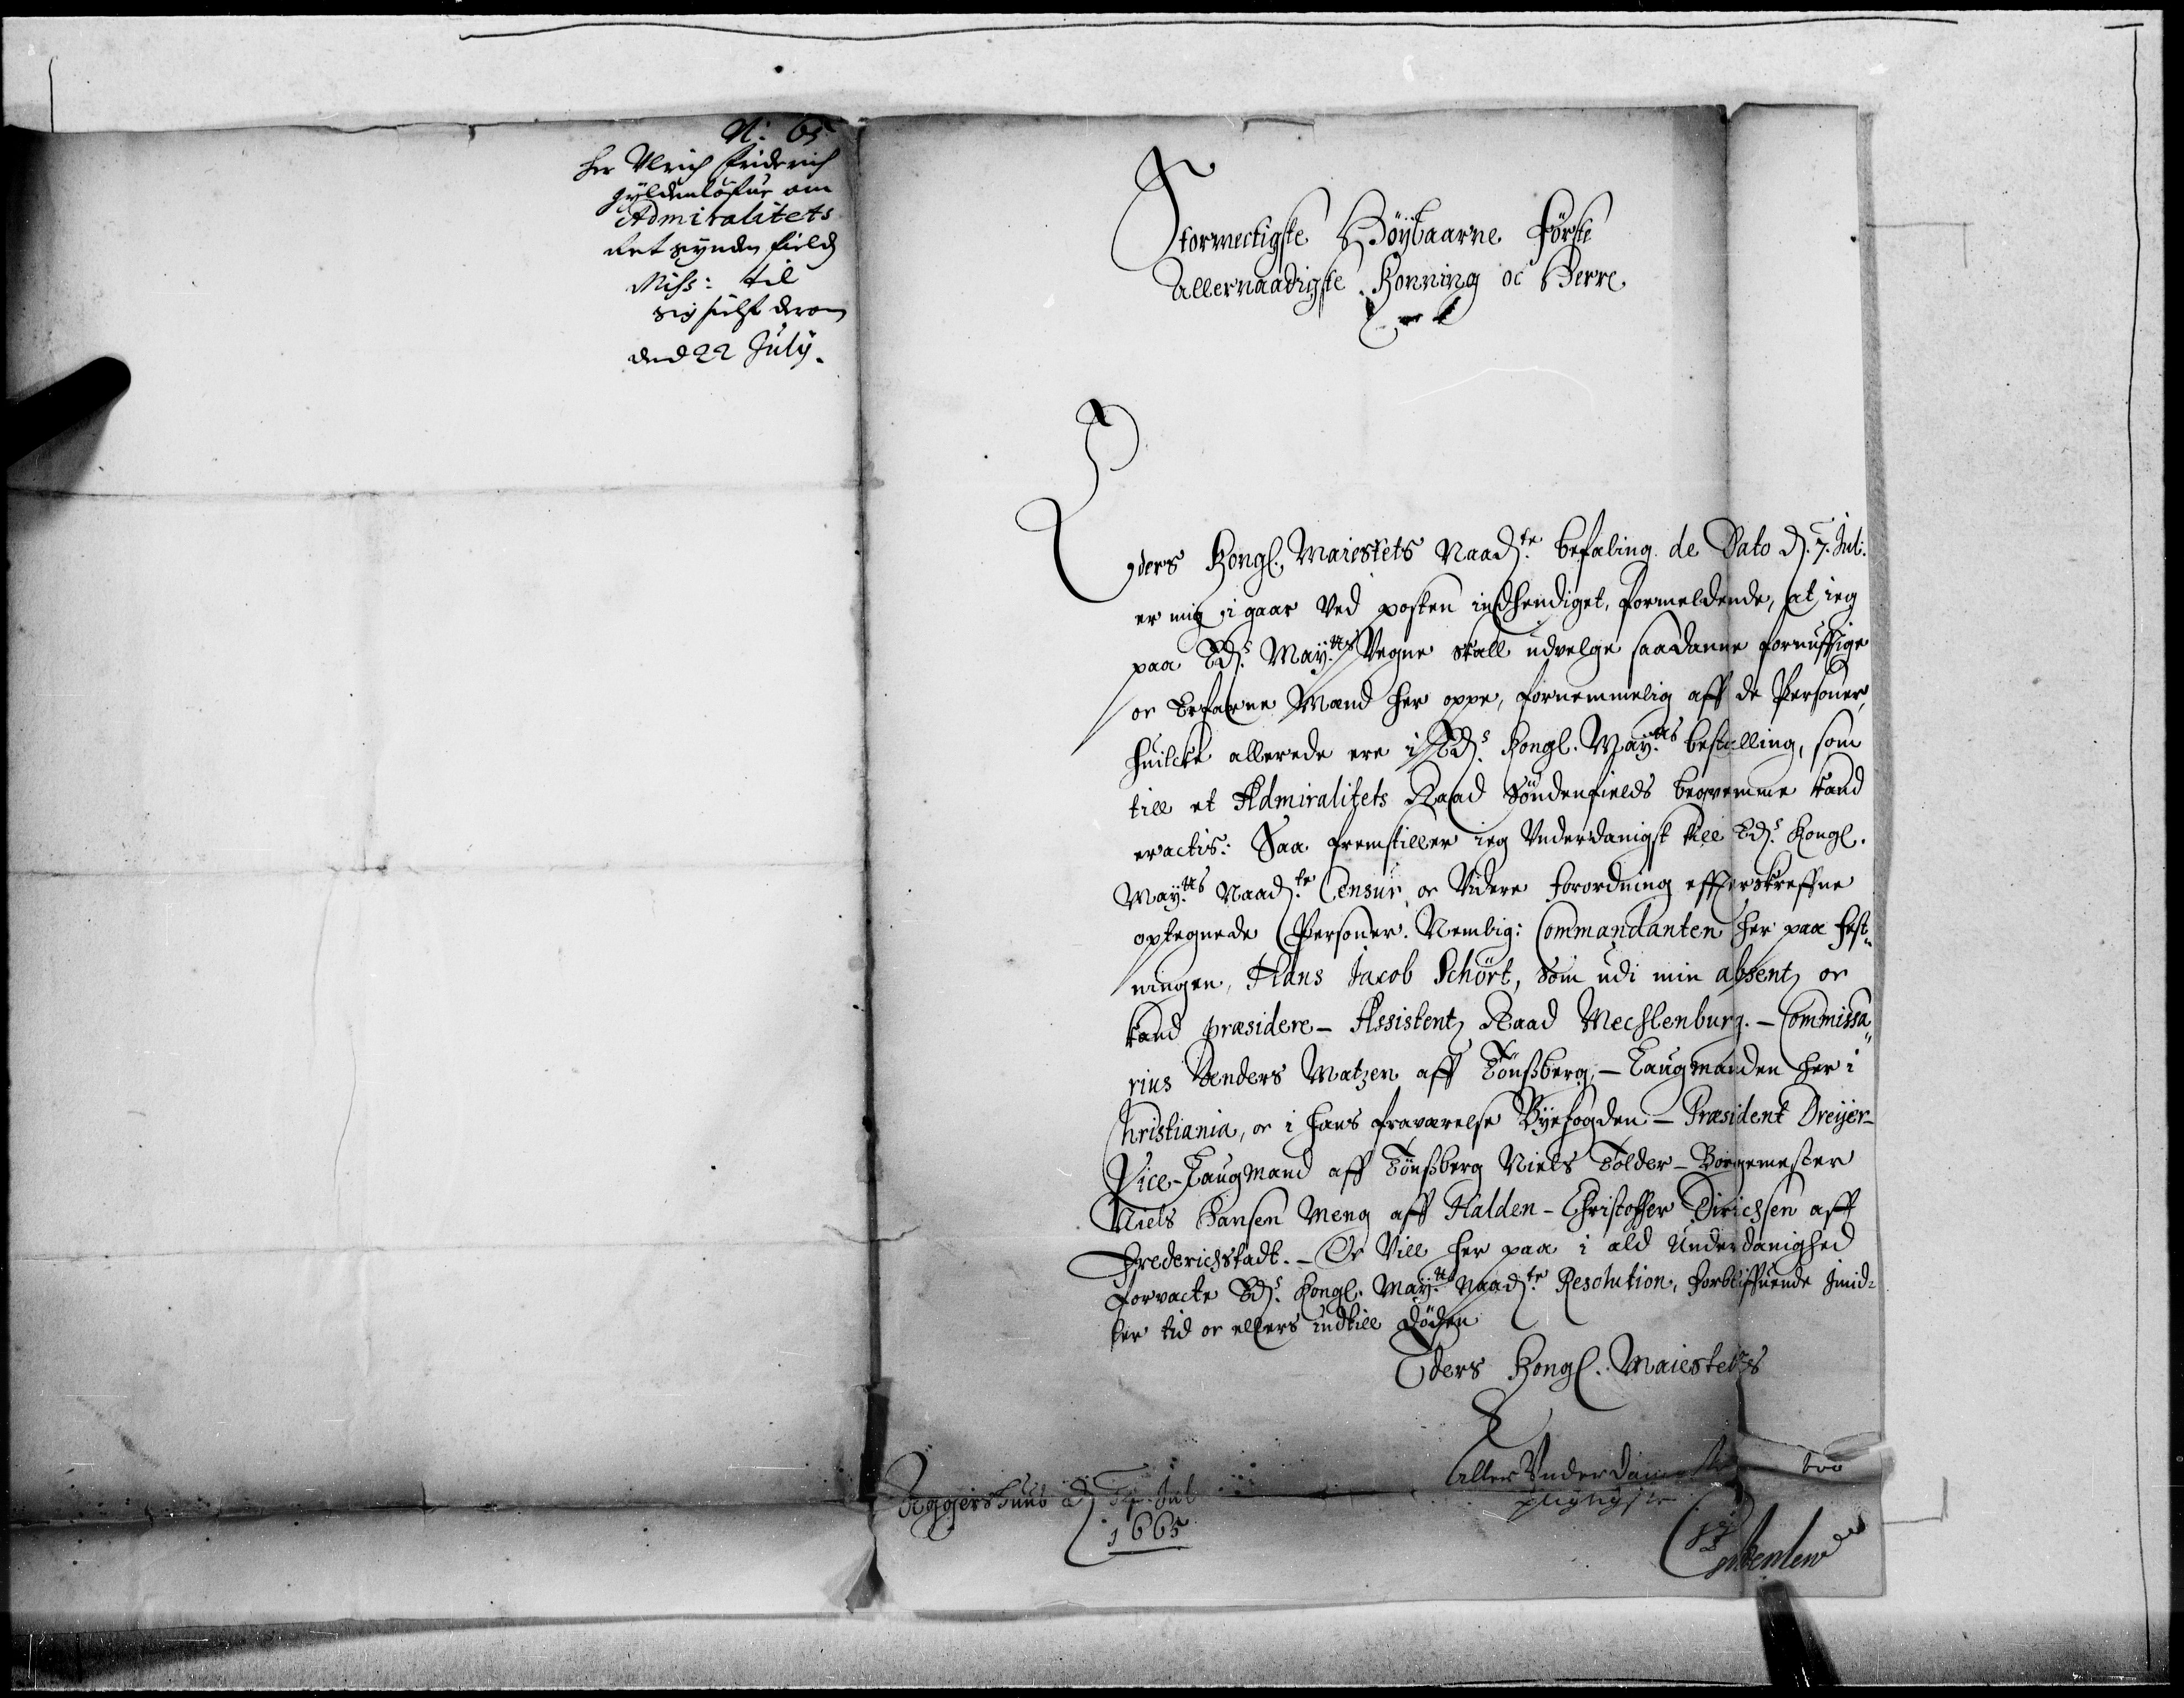 N: 65
her Ulrich Friderich
Gyldenløfue om
Admiralitets
Ret synden fields
Miss: til
sig sielf derom
dend 22 July.
Stormectigste Høybaarne Første
Allernaadigste Konning oc Herre
Eders Kongl. Maiestets Naad.te befaling de Dato d. 7. Jul:
er mig i gaar Ved posten indhendiget, formeldende, at ieg
paa Ed.s May.tts Vegne skall udvelge saadanne fornufftige
oc Erfarne Mænd her oppe, fornemmelig aff de Personer,
huilcke allerede ere i Ed.s Kongl. May.tts bestilling, som
till et Admiralitets Raad Søndenfields beqvemme kand
eractis: Saa fremstiller ieg Underdanigst till Ed.s Kongl.
May.tts Naad.te Censur, oc Videre forordning effterskreffne
optegnede Personer. Nemblig: Commandanten her paa fest„
ningen, Hans Jacob Schört, Som udi min absentz oc
kand præsidere – Assistentz Raad Mechlenburg. – Commissa„
rius Anders Matzen aff Tönsberg, – Laugmanden her i
Christiania, oc i hans fraværelse Byefogden – Præsident Dreyer –
Vice-Laugmand aff Tönsberg Niels Tolder – Borgemester
Niels Hansen Meng aff Halden – Christoffer Dirichsen aff
Frederichstadt. – Oc Vill her paa i ald Underdanighed
forvacte Ed.s Kongl. May.tts Naad.te Resolution, forbliffuende Imid=
ler tid oc ellers indtill Døden
Eders Kongl. Maiestetzs
Aggershuus d Jul
1665
Aller Underdanigste troe
pligtigste